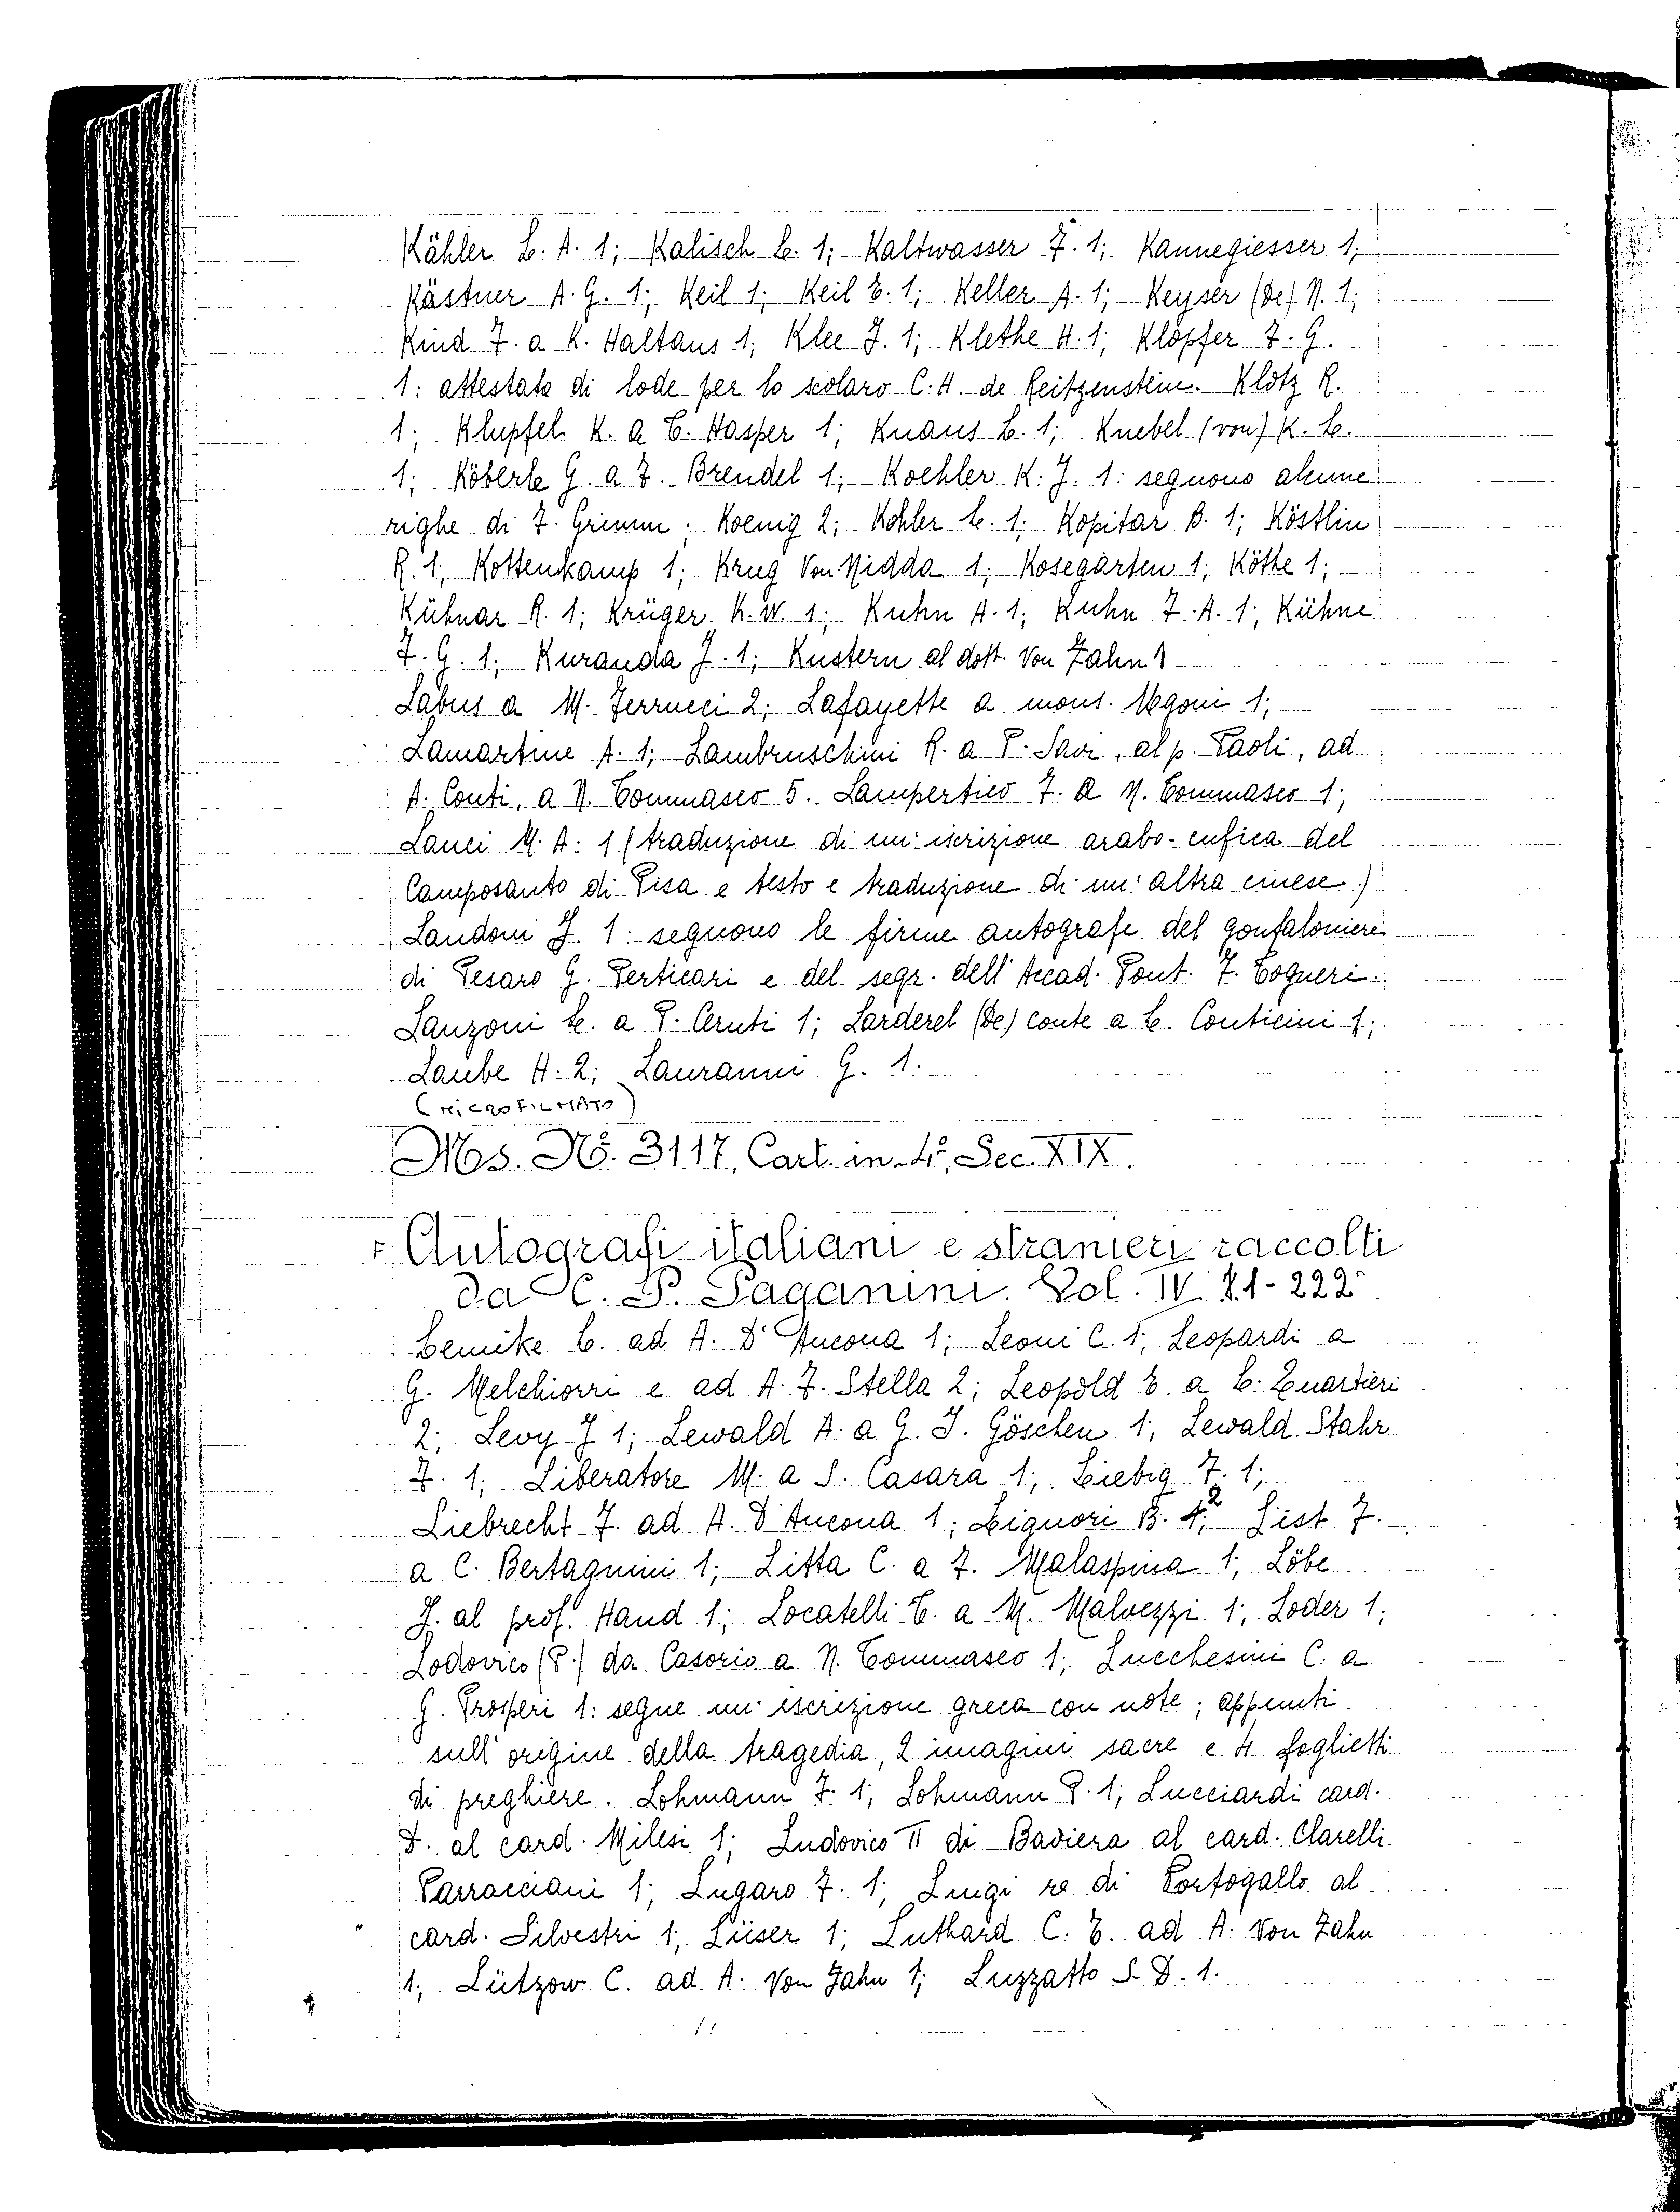 Kähler L. A. 1; Kalisch L. 1; Kaltwasser F. 1; Kannegiesser 1;
Kästner A. G. 1; Keil 1; Keil E. 1; Keller A. 1; Keyser (De) N. 1;
Kind F. a K. Haltaus 1; Klee J. 1; Klethe H. 1; Klöpfer F. G.
1: attestato di lode per lo scolaro C. H. de Reitzenstein. Klotz R.
1; Klupfel K. a T. Hasper 1; Knaus L. 1; Knebel (von) K. L.
1; Köberle G. a F. Brendel 1; Koehler K. J. 1: seguono alcune
righe di F. Grimm; Koenig 2; Kohler L. 1; Kopitar B. 1; Köstlin
R. 1; Kottenkamp 1; Krug Von Nidda 1; Kosegarten 1; Köthe 1;
Kühnar R. 1; Krüger K. W. 1; Kuhn A. 1; Kuhn F. A. 1; Kühne
F. G. 1; Kuranda J. 1; Kustern al dott. Von Zahn 1
Labus a M. Ferrucci 2; Lafayette a mons. 1;
Lamartine A. 1; Lambruschini R. a P. Savi, al p. Paoli, ad
A. Conti, a N. Tommaseo 5. Lampertico F. a N. Tommaseo 1;
Lanci M. A. 1 (traduzione di un' iscrizione arabo-cufica del
Camposanto di Pisa e testo e traduzione di un' altra cinese.)
Landoni J. 1: seguono le firme autografe del gonfaloniere
di Pesaro G. Perticari e del segr. dell' Accad. Pont. F.
Lanzoni L. a P. Ceruti 1; Larderel (De) conte a L. Conticini 1;
Laube H. 2; Lauranni G. 1.
(MICROFILMATO)
Ms. N.° 3117, Cart. in-4°, Sec. XIX.
Autografi italiani e stranieri raccolti
da C. P. Paganini. Vol. IV 1-222
Lemike C. ad A. D' Ancona 1; Leoni C. 1; Leopardi a
G. Melchiorri e ad A. F. Stella 2; Leopold E. a L. Quartieri
2; Levy J 1; Lewald A. a G. J. Göschen 1; Lewald Stahr
F. 1; Liberatore M. a S. Casara 1; Liebig F. 1;
Liebrecht F. ad A. D' Ancona 1; Liguori B. 2; List F.
a C. Bertagnini 1; Litta C. a F. Malaspina 1; Löbe
J. al prof. Hand 1; Locatelli T. a M. Malvezzi 1; Loder 1;
Lodovico (P.) da Casoria a N. Tommaseo 1; Lucchesini C. a
G. Prosperi 1: segue un' iscrizione greca con note; appunti
sull' origine della tragedia, 2 imagini sacre e 4 foglietti
di preghiere. Lohmann F. 1; Lohmann P. 1; Lucciardi card.
D. al card. Milesi 1; Ludovico II di Baviera al card. Clarelli
Parracciani 1; Lugaro F. 1; Luigi re di Portogallo al
card. Silvestri 1; Lüser 1; Luthard C. E. ad A. Von Zahn
1; Lützow C. ad A. Von Zahn 1; Luzzatto S. D. 1.